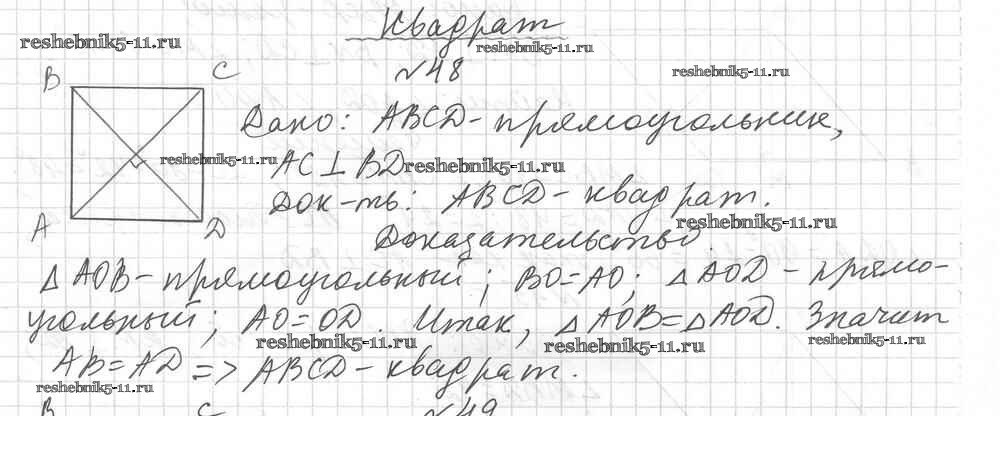 Квадрат
reshebnik5-11.ru
reshebnik5-11.ru
№48
reshebnik5-11.ru
B C
Дано: ABCD - прямоугольник,
reshebnik5-11.ru
AC⊥BD
reshebnik5-11.ru
Док-ть: ABCD - квадрат.
reshebnik5-11.ru
A D
Доказательство.
△AOB - прямоугольный; BO=AO; △AOD - прямо-
угольный; AO=OD. Итак, △AOB=△AOD. Значит
reshebnik5-11.ru
reshebnik5-11.ru
reshebnik5-11.ru
AB=AD => ABCD - квадрат.
reshebnik5-11.ru
B C №49